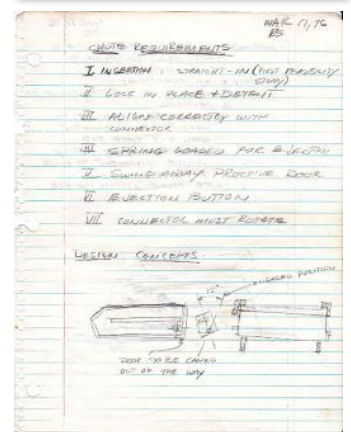 MAR 17, 76
CHUTE REQUIREMENTS
I INSERTION STRAIGHT-IN (
STUDY)
II LOCK IN PLACE + DETENT
III ALIGNS CORRECTLY WITH
CONNECTOR
IIII SPRING LOADED FOR EJECTION
V SWING AWAY DOOR
VI EJECTION BUTTON
VII CONNECTOR MUST ROTATE
DESIGN CONCEPTS
ENGAGED POSITION
DOOR
OUT OF THE WAY